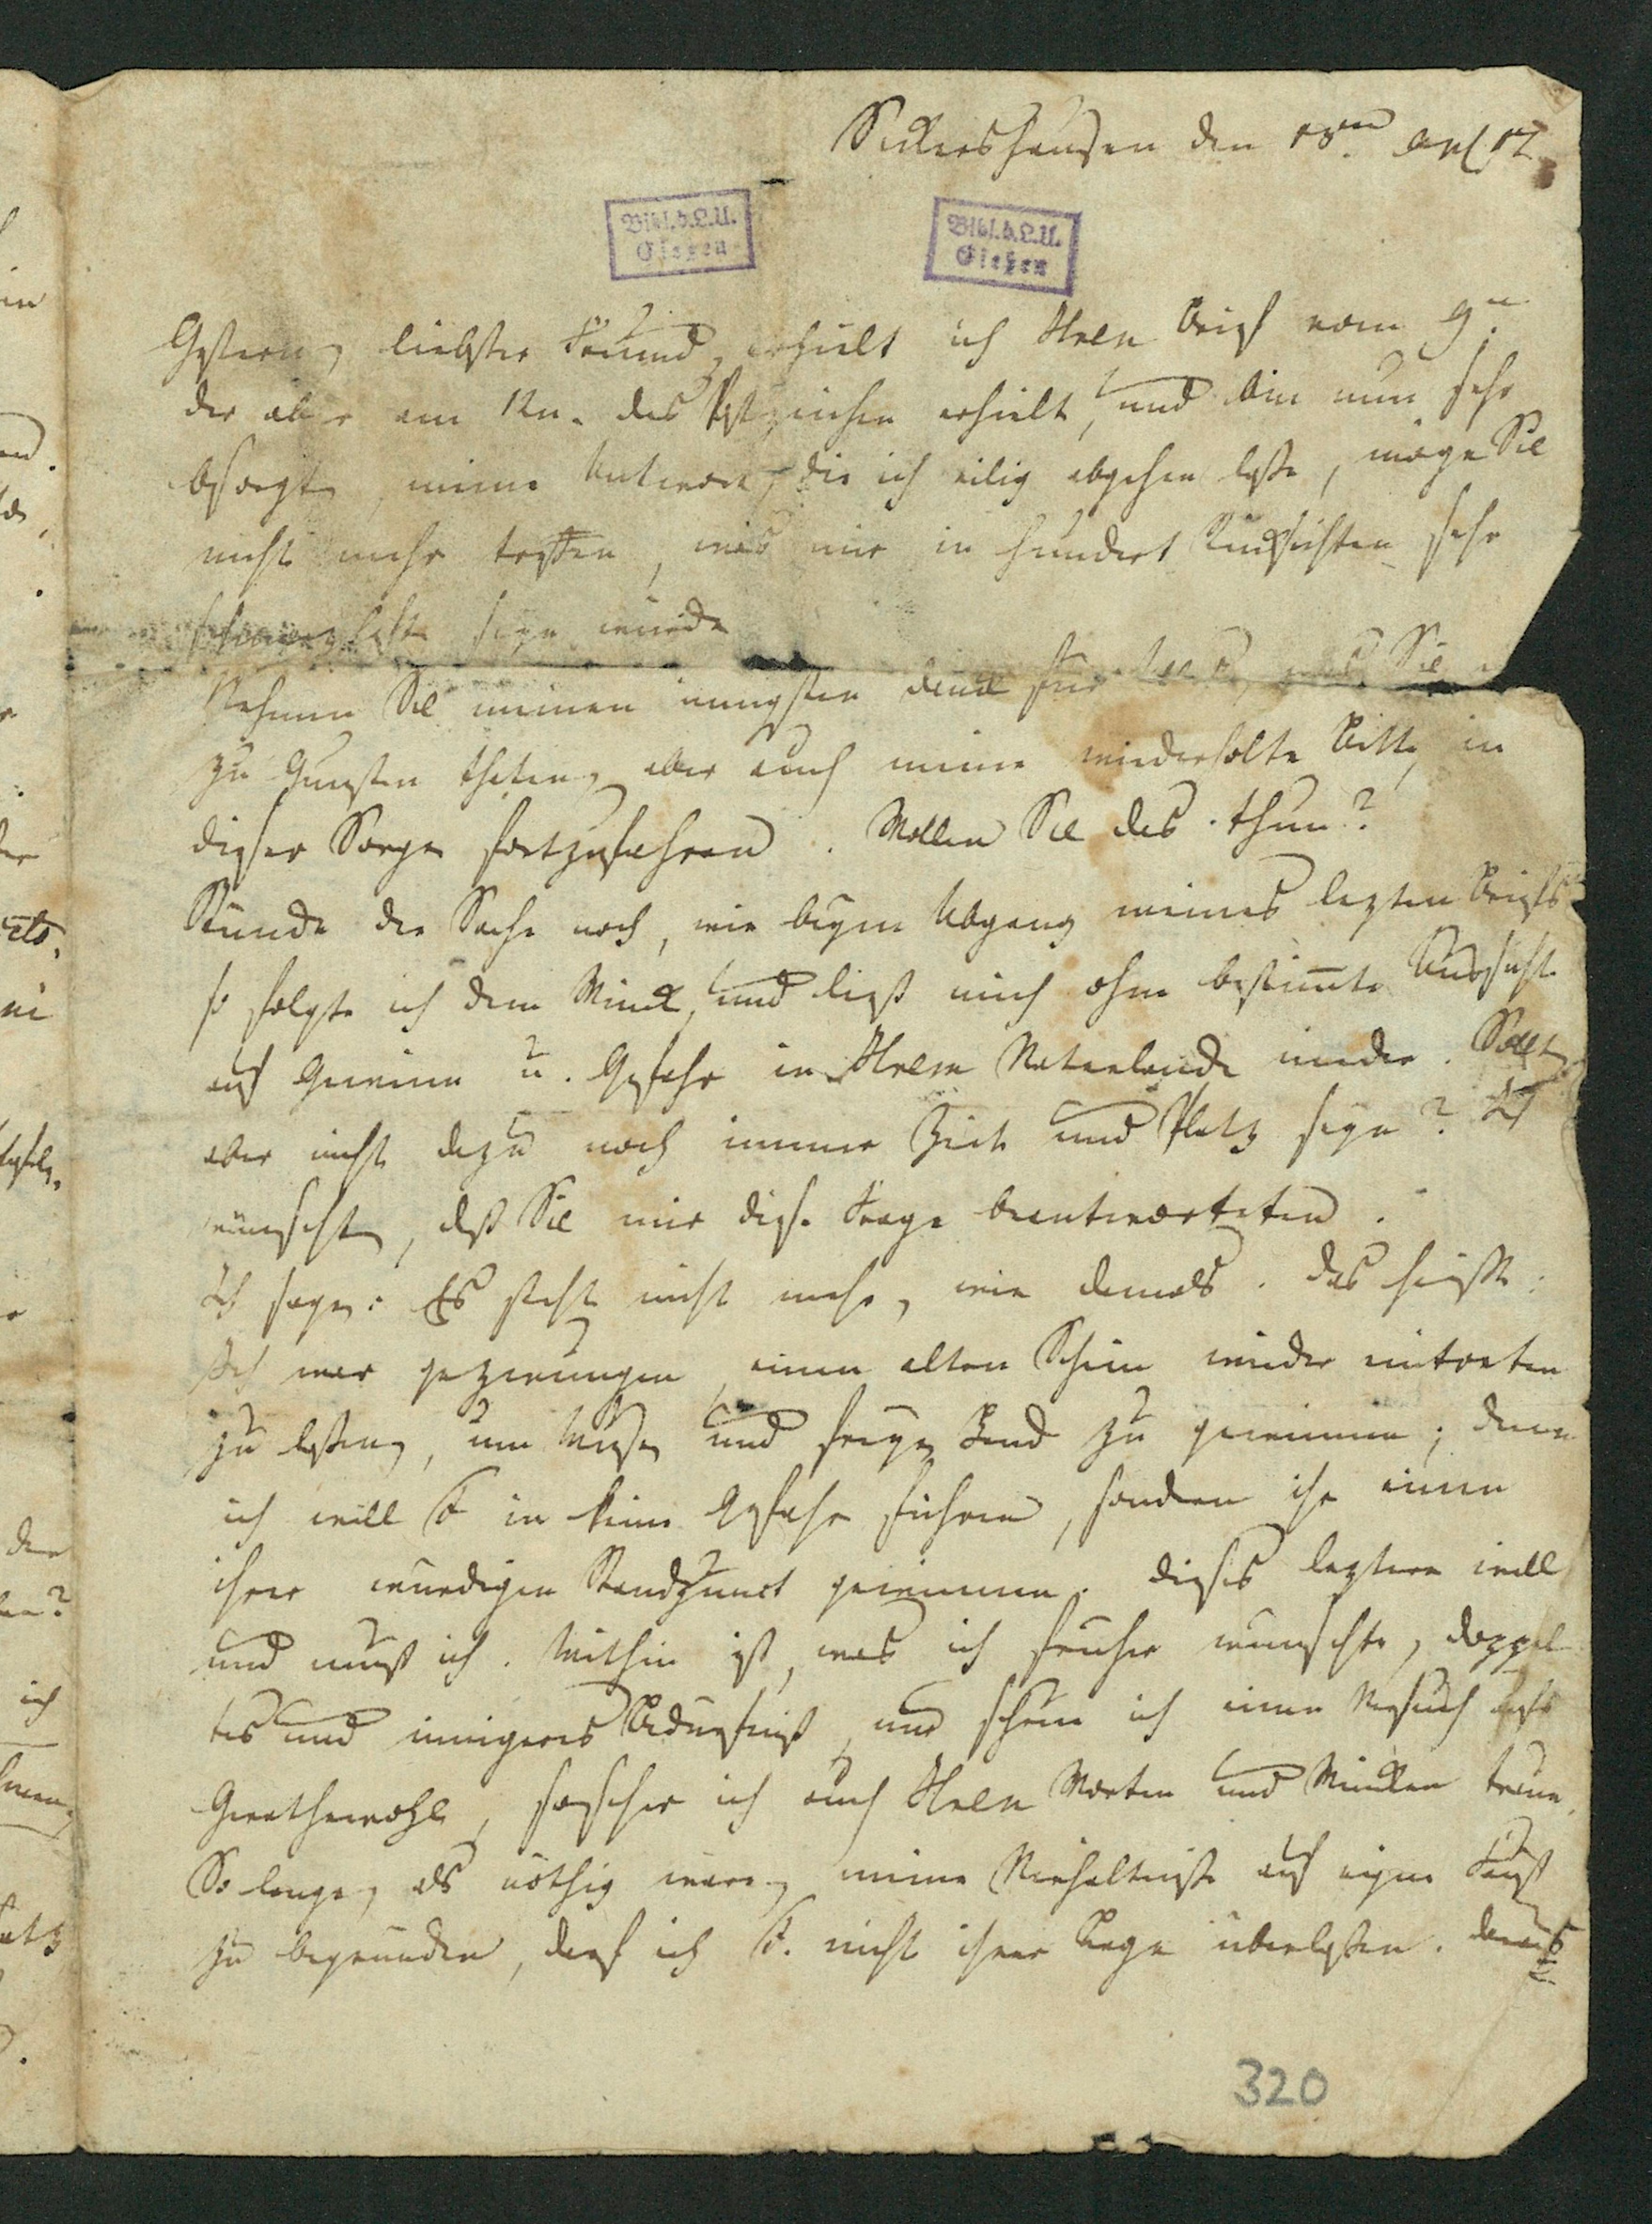 Sickershausen den 18ten
Bibl. d. L. U.
Gießen
Bibl. d. L. U.
Gießen
Gestern, liebster Freund, erhielt ich Ihren Brief vom 9n.
der aber am 12n. das Postzeichen erhielt, und bin nun sehr
besorgt, meine Antwort, die ich eilig abgehen lasse, möge Sie
nicht mehr treffen, was mir in hundert Rücksichten sehr
schmerzhaft seyn würde
Nehmen Sie meinen innigsten Dank für was Sie
zu Gunsten thaten, aber auch meine wiederholte Bitte, in
dieser Sorge fortzufahren. Wollen Sie das thun?
Stünde die Sache noch, wie beym Abgang meines lezten Briefs
so folgte ich dem Wink, und ließ mich ohne bestimmte Aussicht
auf Gewinn u. Gefahr in Ihrem Vaterlande nieder. Sollte
aber nicht dazu noch immer Zeit und Platz seyn? Ich
wünschte, daß Sie mir diese Frage beantworteten.
Ich sage: Es steht nicht mehr, wie damals. Das heißt:
Ich war gezwungen, einen alten Schein wieder eintreten
zu lassen, um Muse und freye Hand zu gewinnen; denn
ich will in keine Gefahr führen, sondern ihr einen
ihrer würdigen Standpunct gewinnen. Dieses leztere will
und muß ich. Mithin ist, was ich früher wünschte, doppel
tes und innigeres Bedürfniß, und scheue ich einen Versuch aufs
Gerathewohl, so ich auch Ihren Worten und Winken traue.
So lange, als nöthig wäre, meine Verhältnisse auf eignen Fuß
zu begründen, darf ich nicht ihrer Lage überlassen. Damals
320